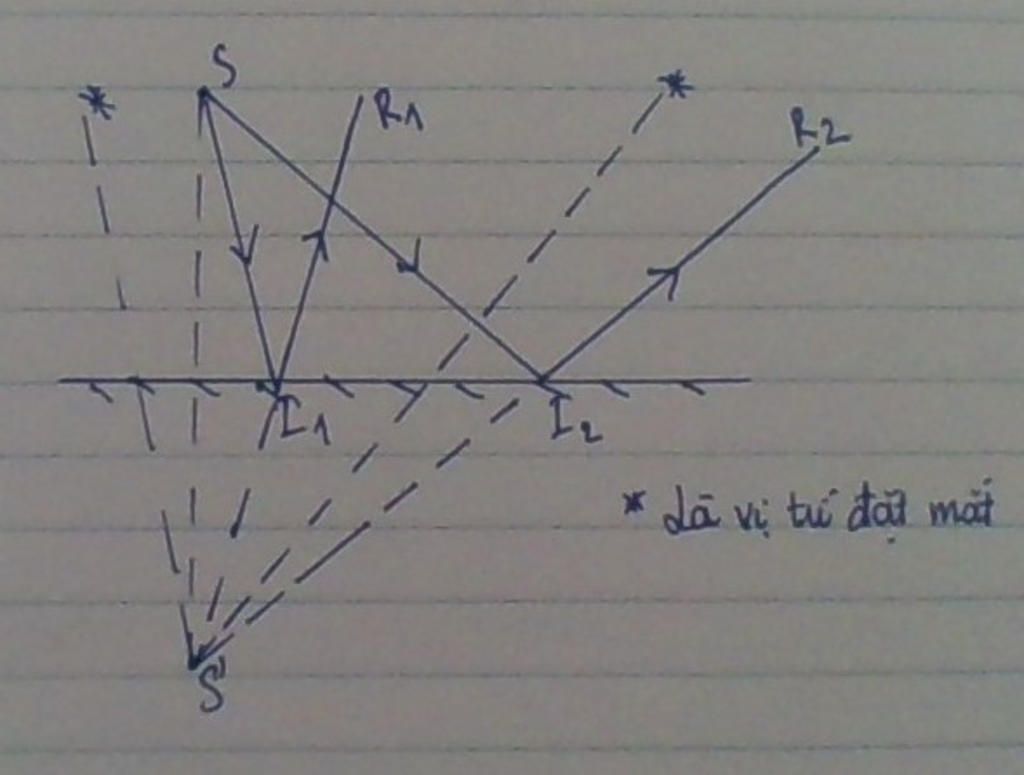 * S R1 * R2
I1 I2
* là vị trí đặt mắt
S'